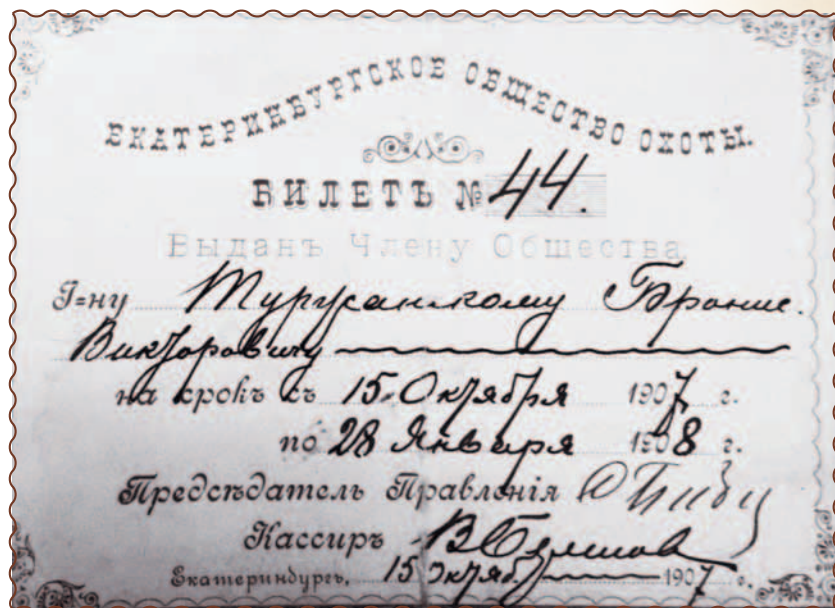 ЕКАТЕРИНБУРГСКОЕ ОБЩЕСТВО ОХОТЫ.
БИЛЕТЪ № 44.
Выданъ Члену Общества
Г=ну
Викторовичу
на срокъ съ 15 Октября 1907 г.
по 28 Января 1908 г.
Предсѣдатель Правленія
Кассиръ
Екатеринбургъ, 15 Октяб. 1907 г.